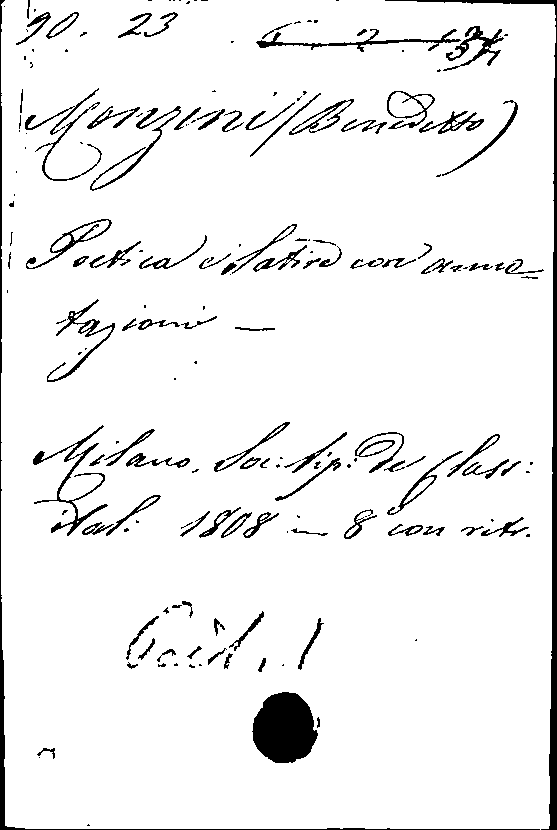 90. 23
Monzini (Benedetto)
Poetica e Satire con anno-
tazioni —
Milano, Soc: tip: de Class:
ital: 1808 in 8 con ritr.